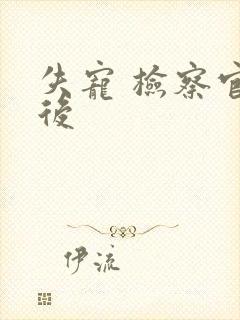 失寵 檢察官
後
伊流